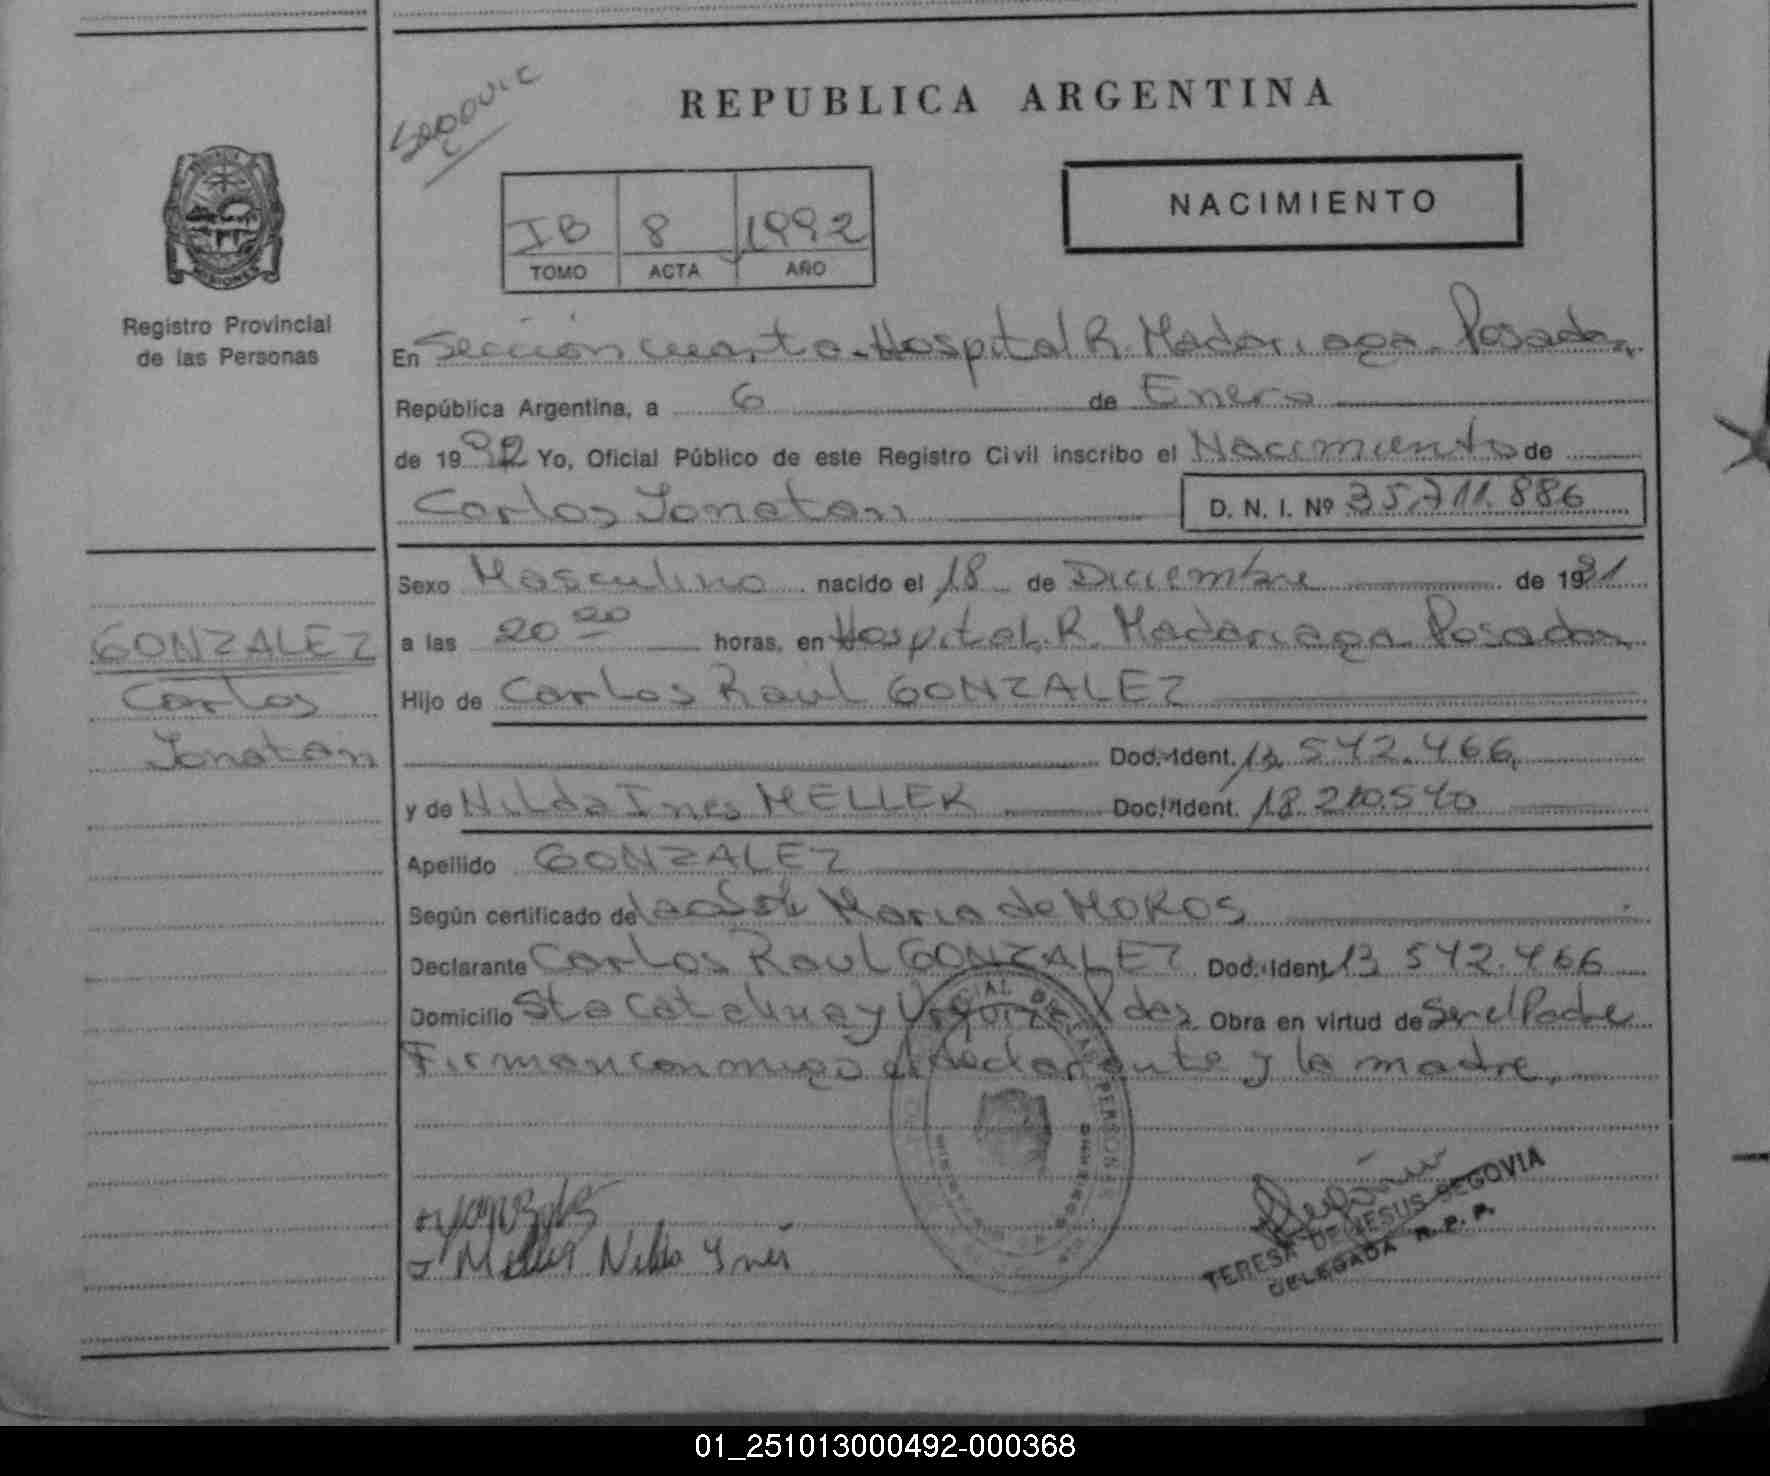 REPUBLICA ARGENTINA
NACIMIENTO
IB 8 1992
TOMO ACTA AÑO
Registro Provincial
de las Personas
En Sección cuarta. Hospital R. Madariaga Posadas
República Argentina, a 6 de Enero
de 1992 Yo, Oficial Público de este Registro Civil inscribo el Nacimiento de
Carlos Jonatan D. N. I. Nº 35.711.886
Sexo Masculino nacido el 18 de Diciembre de 1991
a las 20 20 horas, en Hospital R. Madariaga Posadas
Hijo de Carlos Raul GONZALEZ
Doc. Ident. 13.542.466
y de Nilda Ines MELLER Doc. Ident. 18.210.540
Apellido GONZALEZ
Según certificado de Maria de MOROS
Declarante Carlos Raul GONZALEZ Doc. Ident. 13 542.466
Domicilio Sta Catalina y Urquiza Pdas. Obra en virtud de Ser el Padre
Firman conmigo el declarante y la madre.
GONZALEZ
Carlos
Jonatan
Meller Nilda Ynes
TERESA DE JESUS SEGOVIA
DELEGADA R. P. P.
01_251013000492-000368